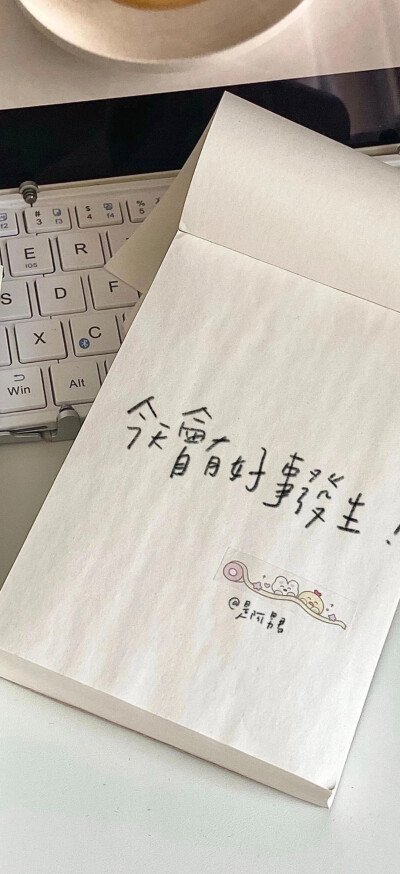 # 3 f3
$ 4 f4
% 5
E iOS
R
S
D
F
X
C
Win
Alt
今天會有好事發生！